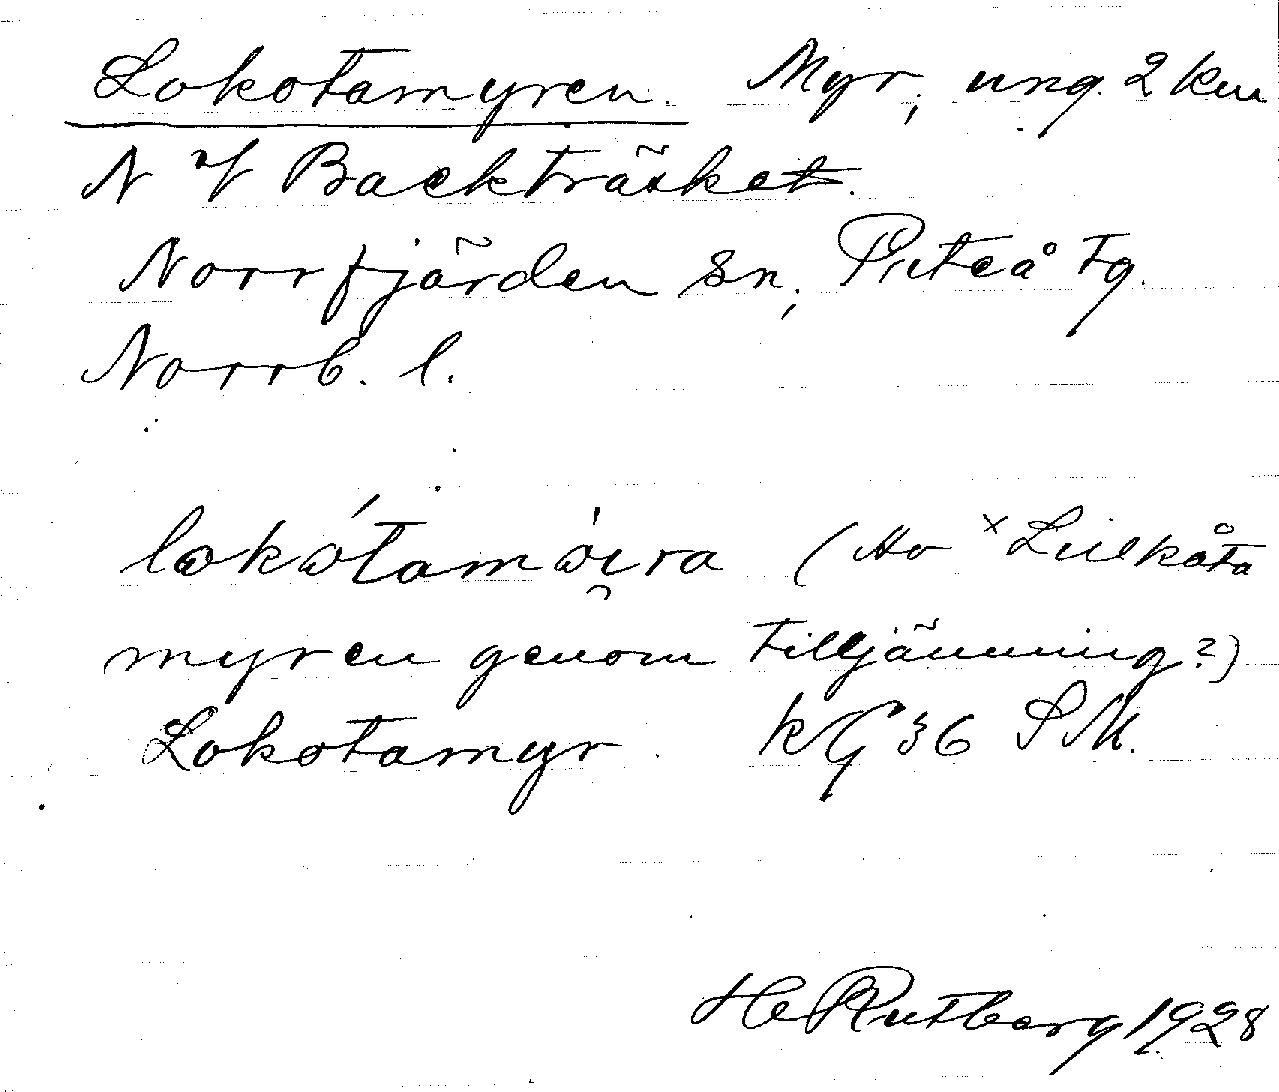 Lokotamyren. Myr, ung. 2 km
N of Backträsket.
Norrfjärden sn, Piteå tg.
Norrb. l.
(Av ˣLillkåta
myren genom tilljämning?)
Lokotamyr kG 36 SM.
He Rutberg 1928